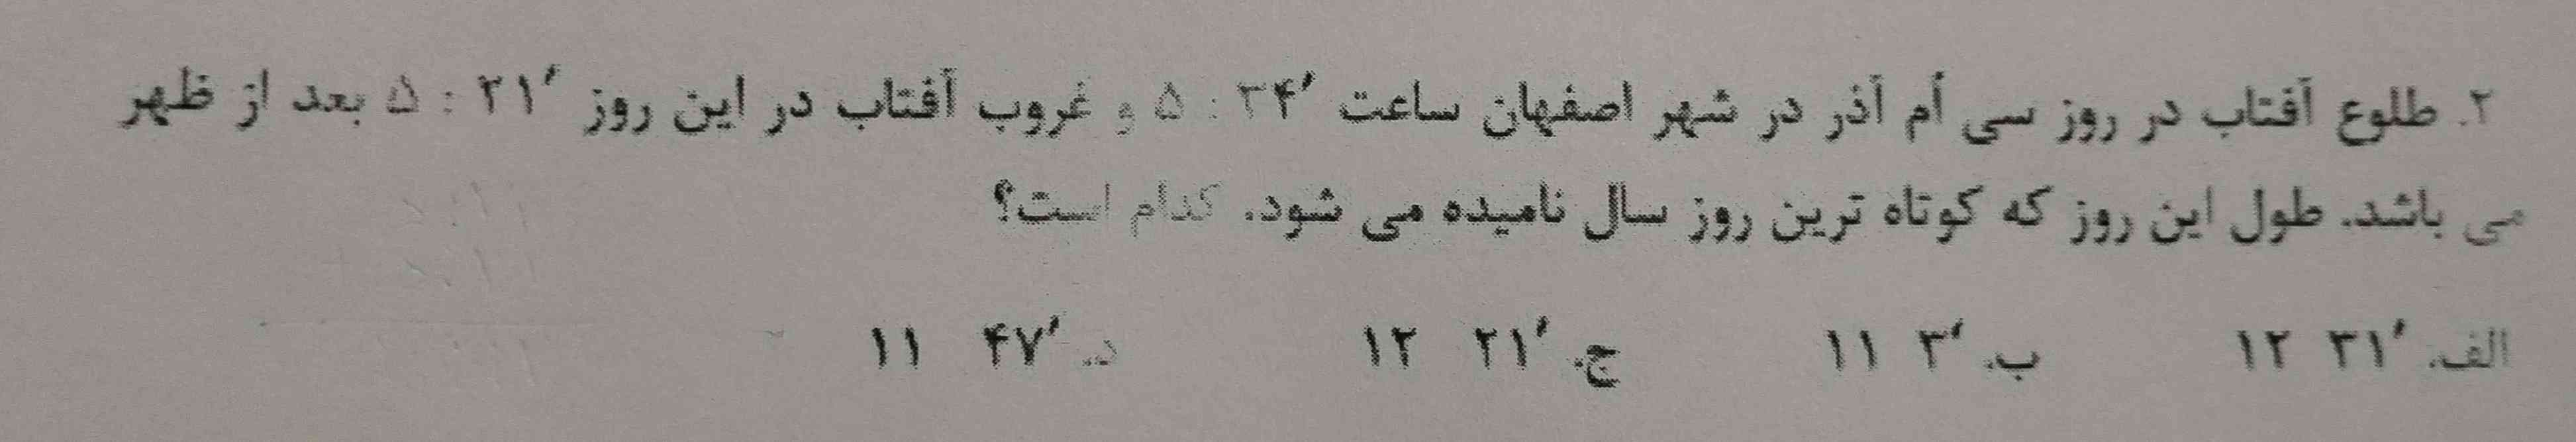 ۲. طلوع آفتاب در روز سی اُم آذر در شهر اصفهان ساعت ۵ : ۳۴′ و غروب آفتاب در این روز ۵ : ۲۱′ بعد از ظهر
می باشد. طول این روز که کوتاه ترین روز سال نامیده می شود. کدام است؟
الف. ۱۲ ۳۱′ ب. ۱۱ ۳′ ج. ۱۲ ۲۱′ د. ۱۱ ۴۷′